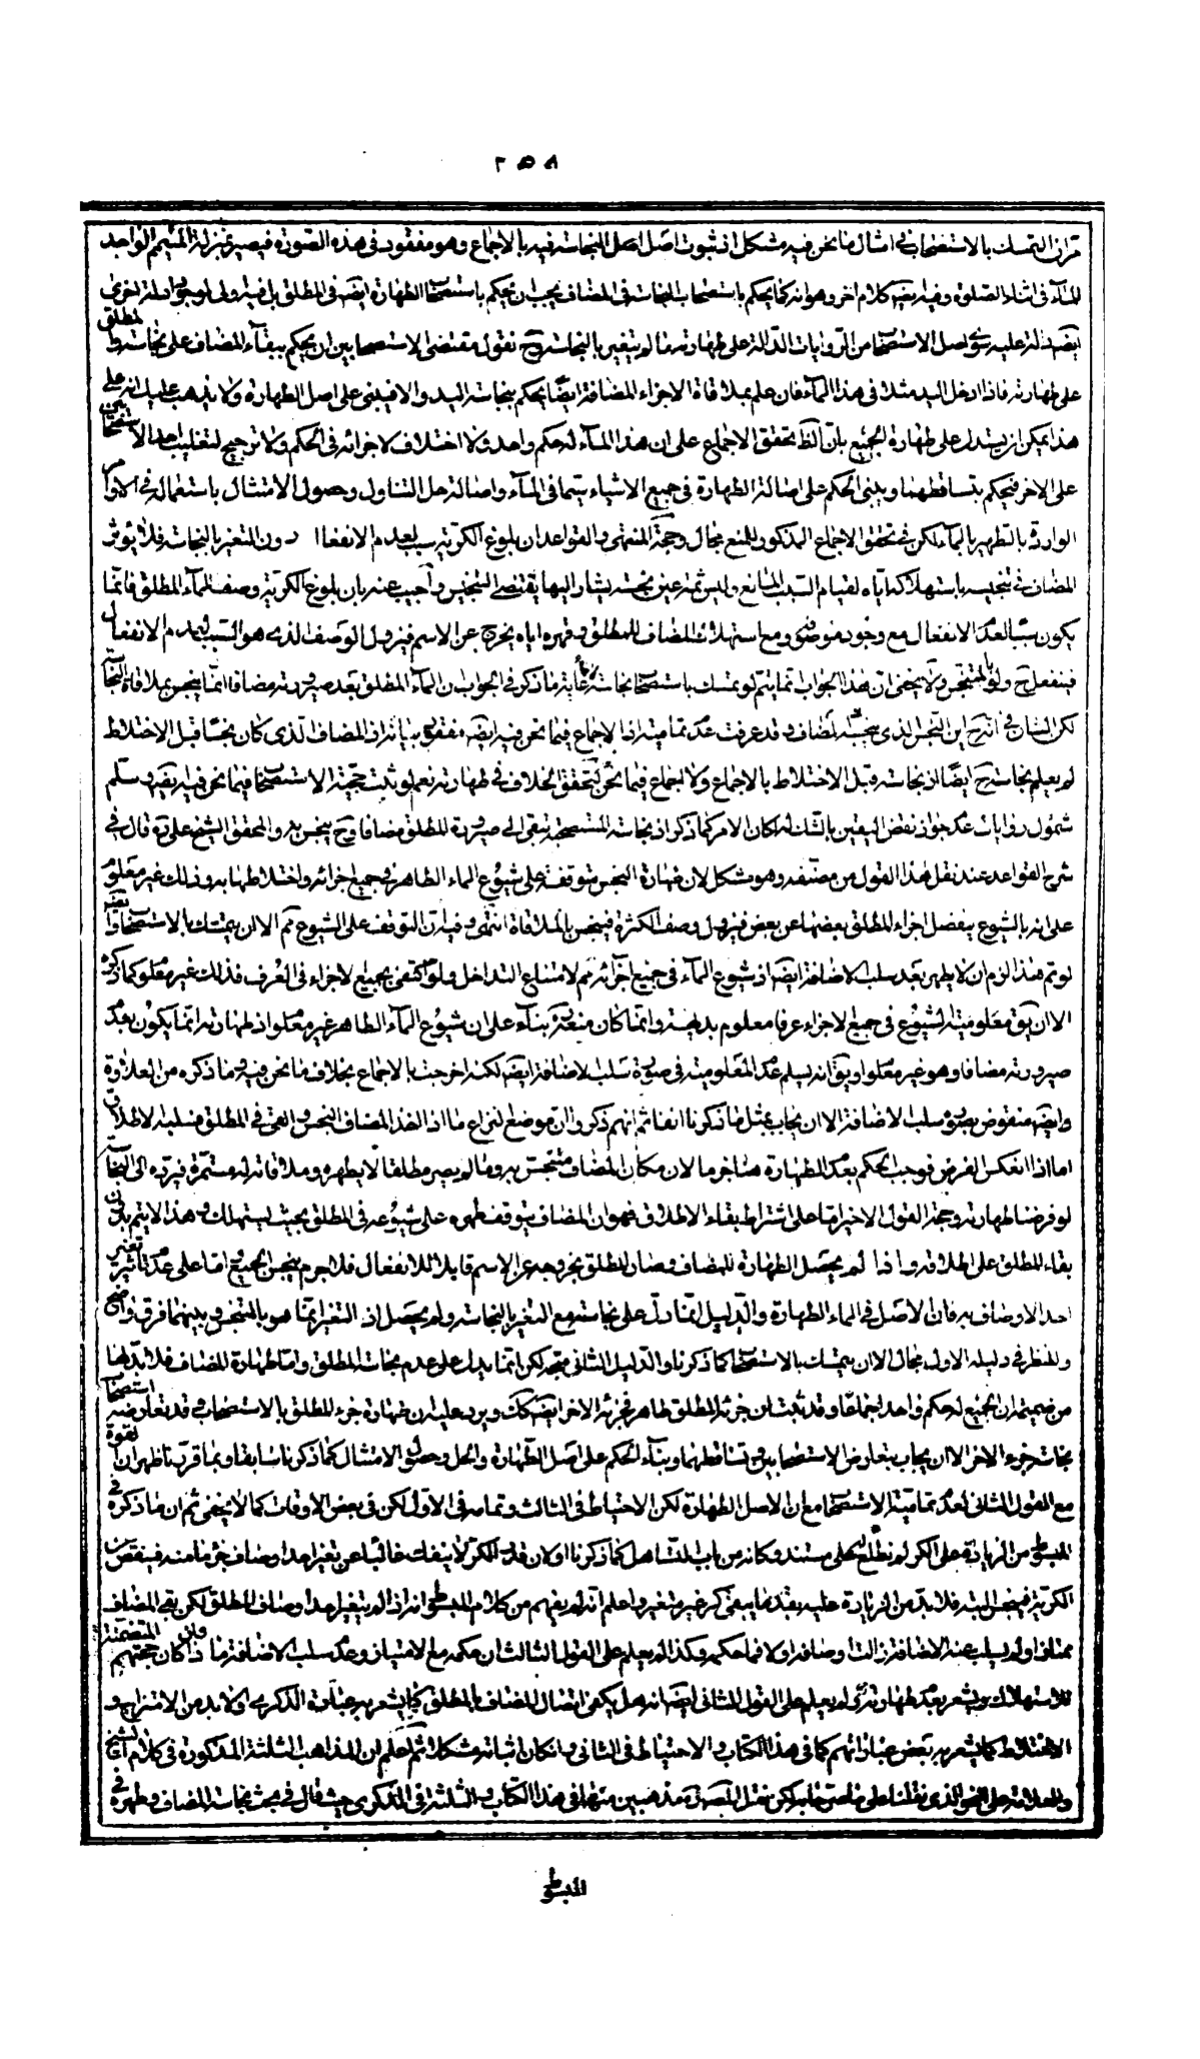 ٢٥٨
من ان التمسك بالاستصحاب في امثال ما نحن فيه مشكل اذ ثبوت اصل الحكم للنجاسة فيه بالاجماع وهو مفقود في هذه الصورة فيصير بمنزلة المتيمم الواجد
للماء في اثناء الصلوة وفيه ايضا كلام اخر وهو انه كما يحكم باستصحاب النجاسة في المضاف يجب ان يحكم باستصحاب الطهارة ايضا في المطلق بل فيه اولى لوجود ادلة اخرى
ايضا دالة عليه سوى اصل الاستصحاب من الروايات الدالة على طهارته ما لم يتغير بالنجاسة وح نقول مقتضى الاستصحابين ان يحكم ببقاء المضاف على نجاسته والمطلق
على طهارته فاذا ادخل اليد مثلا في هذا الماء فان علم بملاقاة الاجزاء المضافة ايضا يحكم بنجاسة اليد والا فيبنى على اصل الطهارة ولا يذهب عليك انه على
هذا يمكن ان يستدل على طهارة الجميع بان الظ تحقق الاجماع على ان هذا الماء له حكم واحد ولا اختلاف لاجزائه في الحكم ولا ترجيح لتغليب احد الاستصحابين
على الاخر فيحكم بتساقطهما ويبنى الحكم على اصالة الطهارة في جميع الاشياء سيما في الماء واصالة حل التناول وحصول الامتثال باستعماله في الاوامر
الواردة بالتطهير بالماء لكن في تحقق الاجماع المذكور للمنع مجال وحجة المنتهى والقواعد ان بلوغ الكرية سبب لعدم الانفعال دون المتغير بالنجاسة فلا يؤثر
المضاف في تنجيسه باستهلاكه اياه لقيام السبب المانع وليس ثمة عين نجسة يشار اليها يقتضي التنجيس واجيب عنه بان بلوغ الكرية وصف للماء المطلق فانما
يكون سببا لعدم الانفعال مع وجود موضوعه ومع استهلاك المضاف للمطلق وقهره اياه يخرج عن الاسم فيزول الوصف الذي هو السبب لعدم الانفعال
فينفعل ح ولو بالمتنجس ولا يخفى ان هذا الجواب انما يتم لو تمسك باستصحاب نجاسة غاية ما ذكر في الجواب ان الماء المطلق بعد صيرورته مضافا انما ينجس بملاقاة النجاسة
لكن الشان في انه ح اين النجس الذي ينجسه المضاف وقد عرفت عدم تماميته اذ الاجماع فيما نحن فيه ايضا مفقود
لم يعلم نجاسته ح ايضا اذ نجاسته قبل الاختلاط بالاجماع ولا اجماع فيما نحن فيه لتحقق الخلاف في طهارته نعم لو ثبت حجية الاستصحاب فيما نحن فيه ايضا وسلم
شمول روايات عدم جواز نقض اليقين بالشك له لكان الامر كما ذكر اذ نجاسته المستصحبة تبقى الى صيرورة المطلق مضافا وح ينجس به والمحقق الشيخ علي ره قال في
شرح القواعد عند نقل هذا القول من مصنفه وهو مشكل لان طهارة النجس متوقفة على شيوع الماء الطاهر في جميع اجزائه واختلاطها به وذلك غير معلوم
على انه بالشيوع ينفصل اجزاء المطلق بعضها عن بعض فيزول وصف الكثرة فينجس بالملاقاة انتهى وفيه ان التوقف على الشيوع مم الا ان يتمسك بالاستصحاب وايضا
لو تم هذا لزم ان لا يطهر بعد سلب الاضافة ايضا اذ شيوع الماء في جميع اجزائه مم لامتناع التداخل ولو اكتفي بجميع الاجزاء في العرف فذلك غير معلوم كما ذكره
الا ان يق معلومية الشيوع في جميع الاجزاء عرفا معلوم بديهة وانما كان منعه بناء على ان شيوع الماء الطاهر غير معلوم اذ طهارته انما يكون بعدم
صيرورته مضافا وهو غير معلوم او يق انه يسلم عدم المعلومية في صورة سلب الاضافة ايضا لكنه اخرجت بالاجماع بخلاف ما نحن فيه وما ذكره من العلاوة
وايضا منقوض بصورة سلب الاضافة الا ان يجاب بمثل ما ذكرنا انفا ثم انهم ذكروا ان موضع النزاع ما اذا اخذ المضاف النجس والقي في المطلق فسلبه الاطلاق
اما اذا انعكس الفرض فوجب الحكم بعدم الطهارة جزما لان مكان المضاف متنجس به وما لم يصر مطلقا لا يطهر وملاقاته له مستمرة فيرده الى النجاسة
لو فرضنا طهارته وحجة القول الاخير اما على اشتراط بقاء الاطلاق فهو ان المضاف يتوقف طهره على شيوعه في المطلق بحيث يستهلك وهذا لا يتم بدون
بقاء المطلق على اطلاقه واذا لم يحصل الطهارة للمضاف وصار المطلق بخروجه عن الاسم قابلا للانفعال فلا جرم ينجس الجميع واما على عدم تاثير تغير
احد الاوصاف به فان الاصل في الماء الطهارة والدليل انما دل على نجاسته مع التغير بالنجاسة ولم يحصل اذ التغير انما هو بالمتنجس وبينهما فرق واضح
وللنظر في دليله الاول مجال الا ان يتمسك بالاستصحاب كما ذكرنا والدليل الثاني متجه لكن انما يدل على عدم نجاسة المطلق واما طهارة المضاف فلا بد لها
من ضميمة ان الجميع له حكم واحد اجماعا وقد ثبت ان جزئه المطلق طاهر فجزئه الاخر ايضا كك ويرد عليه ان طهارة جزء المطلق بالاستصحاب وقد تعارضه استصحاب
نجاسة جزءه الاخر الا ان يجاب بتعارض الاستصحابين وتساقطهما وبناء الحكم على اصل الطهارة والحل وحصول الامتثال كما ذكرنا سابقا وبما قررنا ظهر ان القوة
مع القول الثاني لعدم تمامية الاستصحاب مع ان الاصل الطهارة لكن الاحتياط في الثالث وتمامه في الاول لكن في بعض الاوقات كما لا يخفى ثم ان ما ذكره في
المبسوط من الزيادة على الكر لم نطلع على مستند وكانه من باب التساهل كما ذكرنا او لان قدر الكر لا ينفك غالبا عن تغير احد اوصاف جزء ما منه فينقص من
الكرية فينجس البتة فلا بد من الزيادة عليه بقدر ما يبقى كر غير متغير واعلم انه لم يفهم من كلام المبسوط انه اذا لم يتغير احد اوصاف المطلق لكن بقي المضاف
ممتازا ولم يسلب عنه الاضافة زالت اوصافه او لا فما حكمه وكذا لم يعلم على القول الثالث ان حكمه مع الامتياز وعدم سلب الاضافة ماذا وان كان حجتهم المتضمنة
للاستهلاك يشعر بعدم طهارته ح ولم يعلم على القول الثاني ايضا انه هل يكفي اتصال المضاف بالمطلق كما يشعر به عبارة الذكرى او لا بد من الامتزاج و
الاختلاط كما يشعر به بعض عباراتهم كما في هذا الكتاب والاحتياط في الثاني وان كان اثباته مشكلا ثم اعلم ان المذاهب الثلثة المذكورة في كلام الشيخ
والعلامة على النحو الذي نقلناها على ما صرحا به لكن نقل المصنف مذهبين منها في هذا الكتاب والثلثة في الذكرى حيث قال في بحث نجاسة المضاف وطهره في
المبسوط